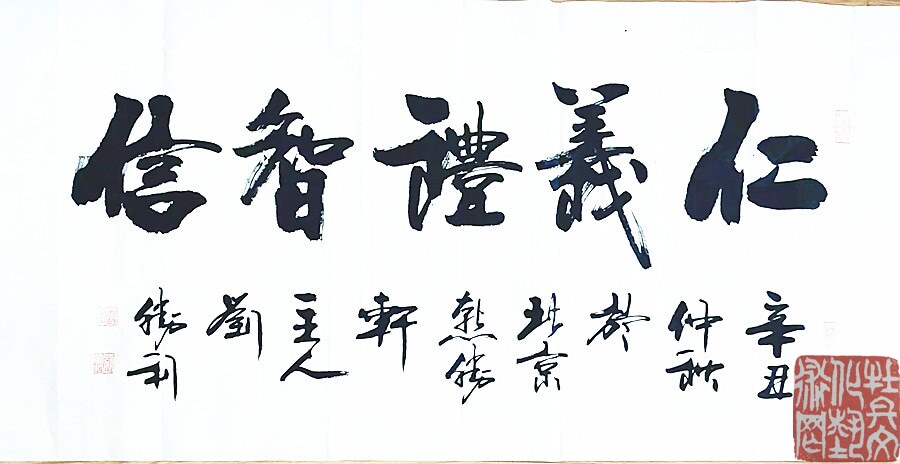 仁義禮智信
辛丑
仲秋
於
北京
懿勝
軒
主人
劉
勝利